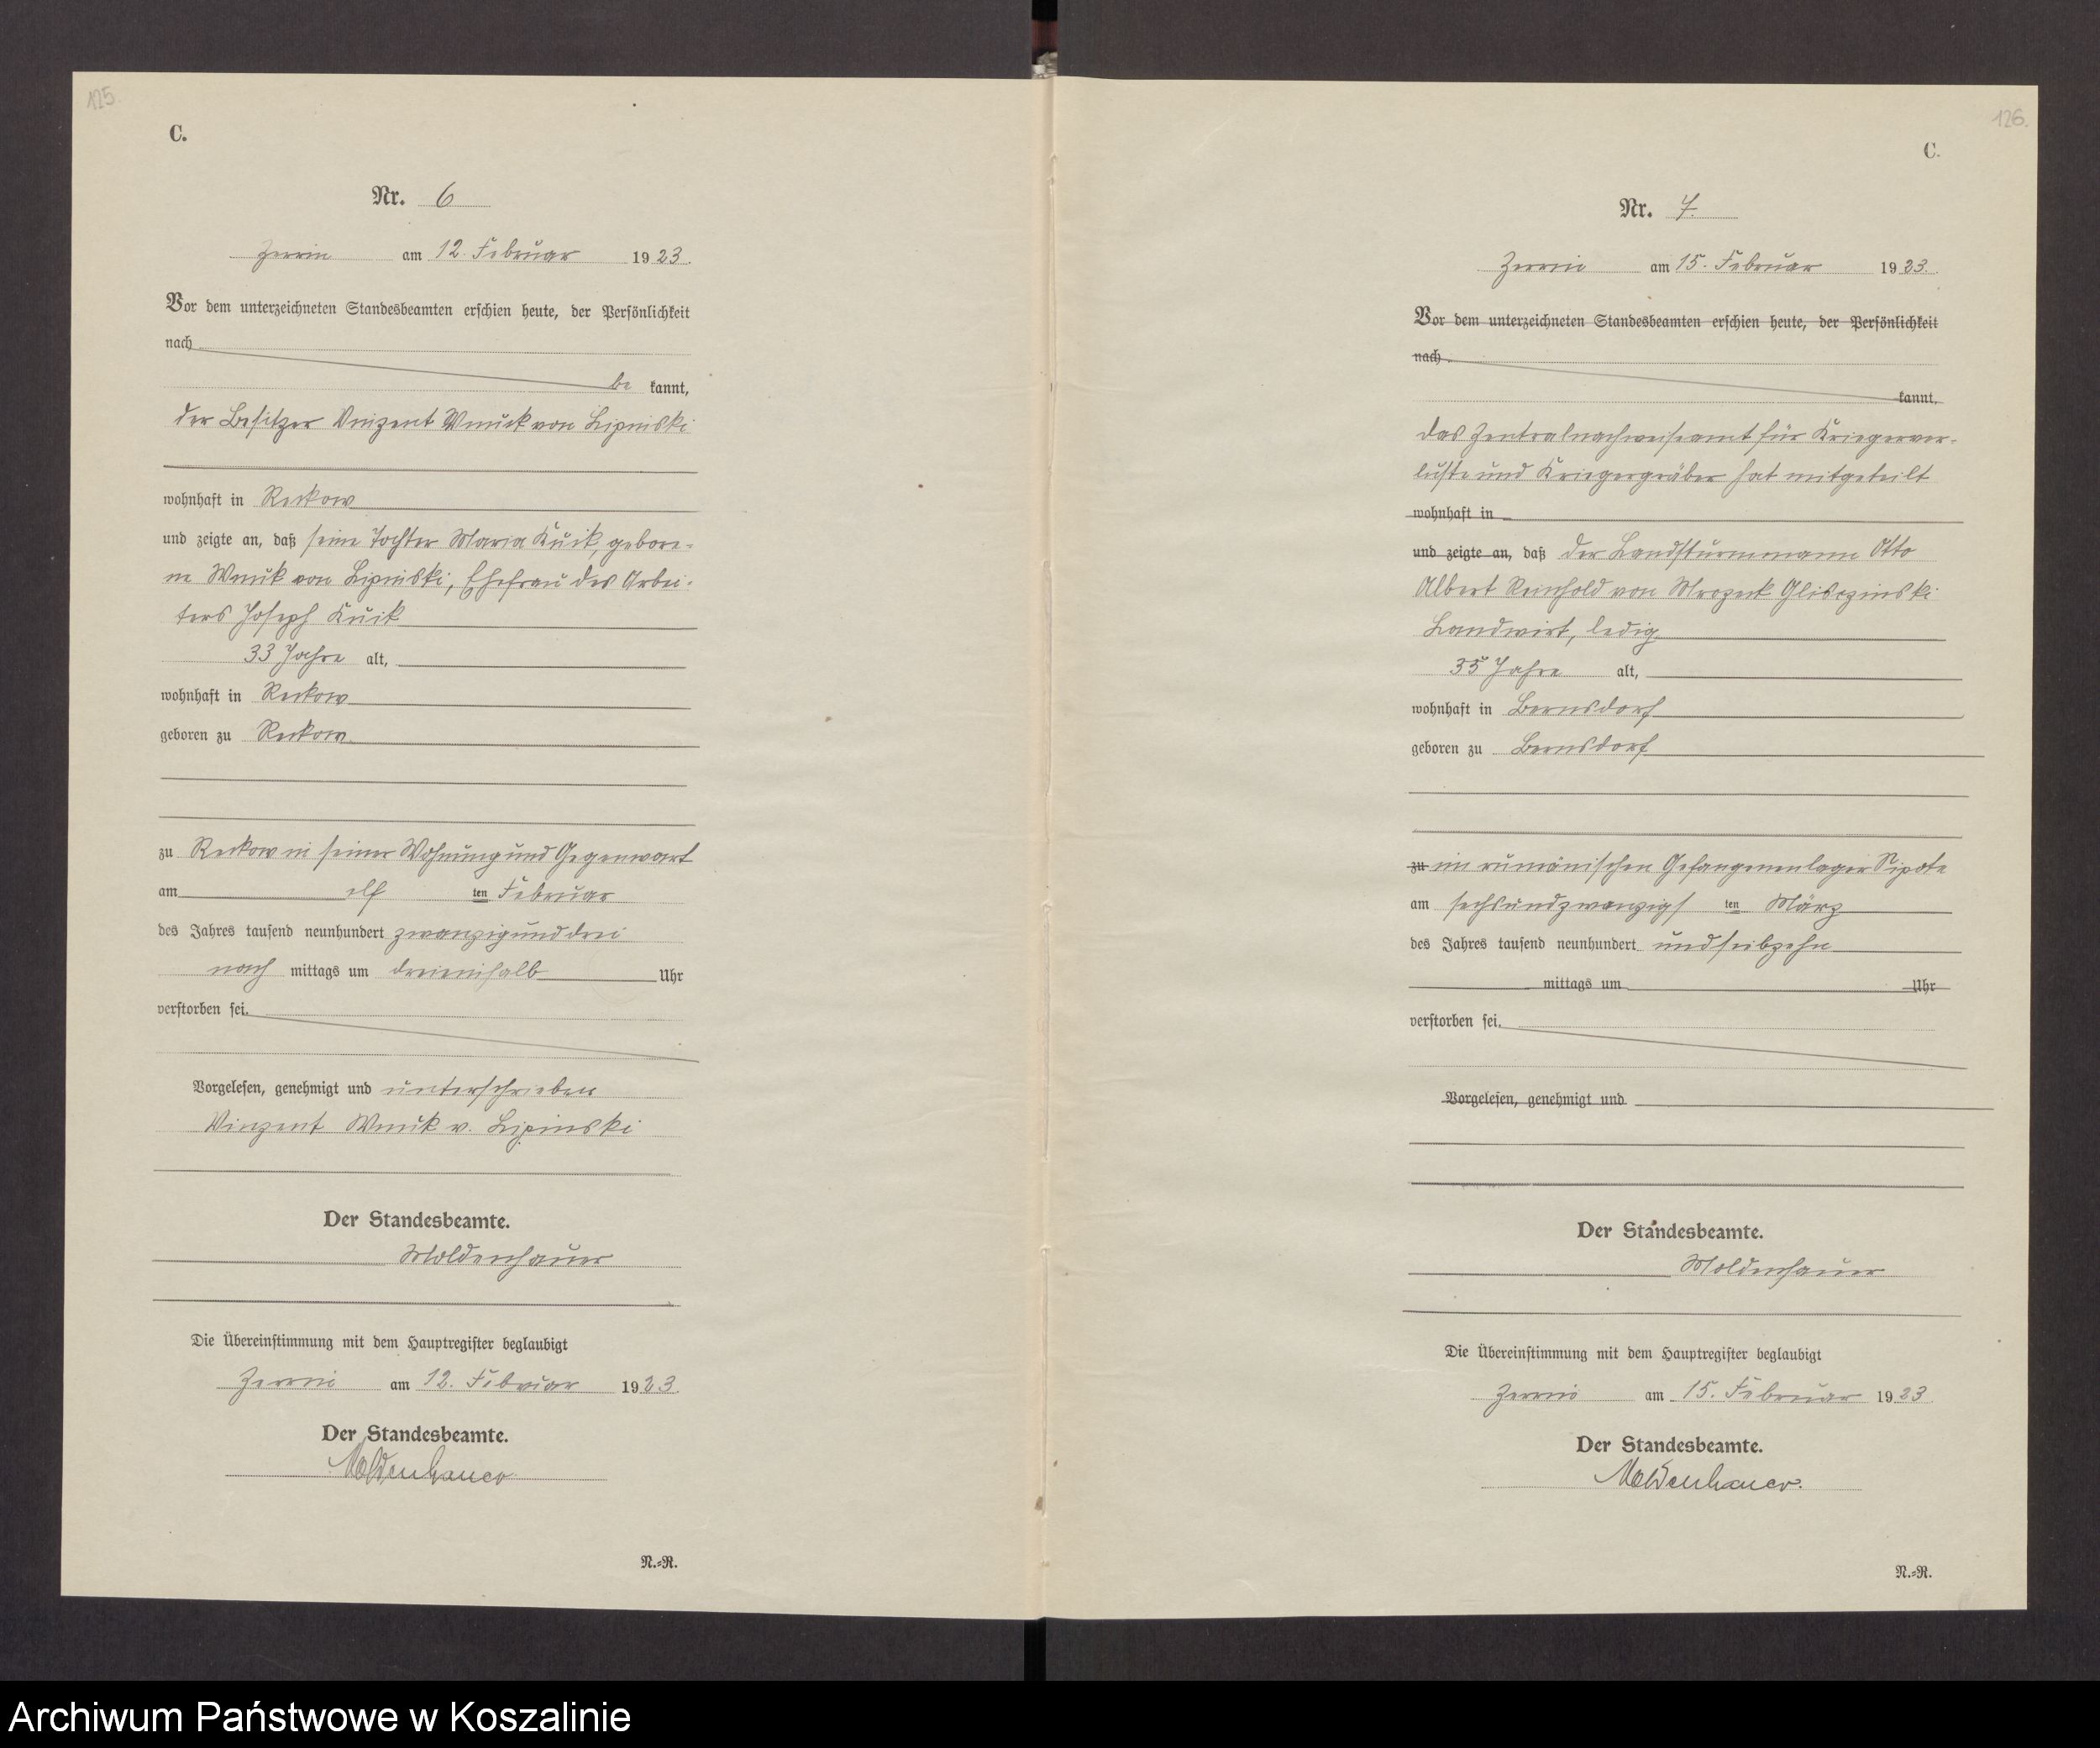 125.
C.
Nr. 6
Zerrin am 12. Februar 1923.
Vor dem unterzeichneten Standesbeamten erschien heute, der Persönlichkeit
nach
be kannt,
der Besitzer Vinzent Wnuck von Lipinski
wohnhaft in Reckow
und zeigte an, daß seine Tochter Maria Kuik, gebore-
ne Wnuk von Lipinski, Ehefrau des Arbei-
ters Joseph Kuik
33 Jahre alt,
wohnhaft in Reckow
geboren zu Reckow
zu Reckow in seiner Wohnung und Gegenwart
am elf ten Februar
des Jahres tausend neunhundert zwanzigunddrei
nach mittags um dreieinhalb Uhr
verstorben sei.
Vorgelesen, genehmigt und unterschrieben
Vinzent Wnuk v. Lipinski
Der Standesbeamte.
Moldenhauer
Die Übereinstimmung mit dem Hauptregister beglaubigt
Zerrin am 12. Februar 1923.
Der Standesbeamte.
Moldenhauer
N.=R.
126.
C.
Nr. 7.
Zerrin am 15. Februar 1923.
Vor dem unterzeichneten Standesbeamten erschien heute, der Persönlichkeit
nach
kannt,
das Zentralnachweiseamt für Kriegerver-
luste und Kriegergräber hat mitgeteilt
wohnhaft in
und zeigte an, daß der Landsturmmann Otto
Albert Reinhold von Mrozek Glisczinski
Landwirt, ledig
35 Jahre alt,
wohnhaft in Bernsdorf
geboren zu Bernsdorf
zu im rumänischen Gefangenenlager Sipote
am sechsundzwanzigs ten März
des Jahres tausend neunhundert undsiebzehn
mittags um Uhr
verstorben sei.
Vorgelesen, genehmigt und
Der Standesbeamte.
Moldenhauer
Die Übereinstimmung mit dem Hauptregister beglaubigt
Zerrin am 15. Februar 1923
Der Standesbeamte.
Moldenhauer.
N.=R.
Archiwum Państwowe w Koszalinie